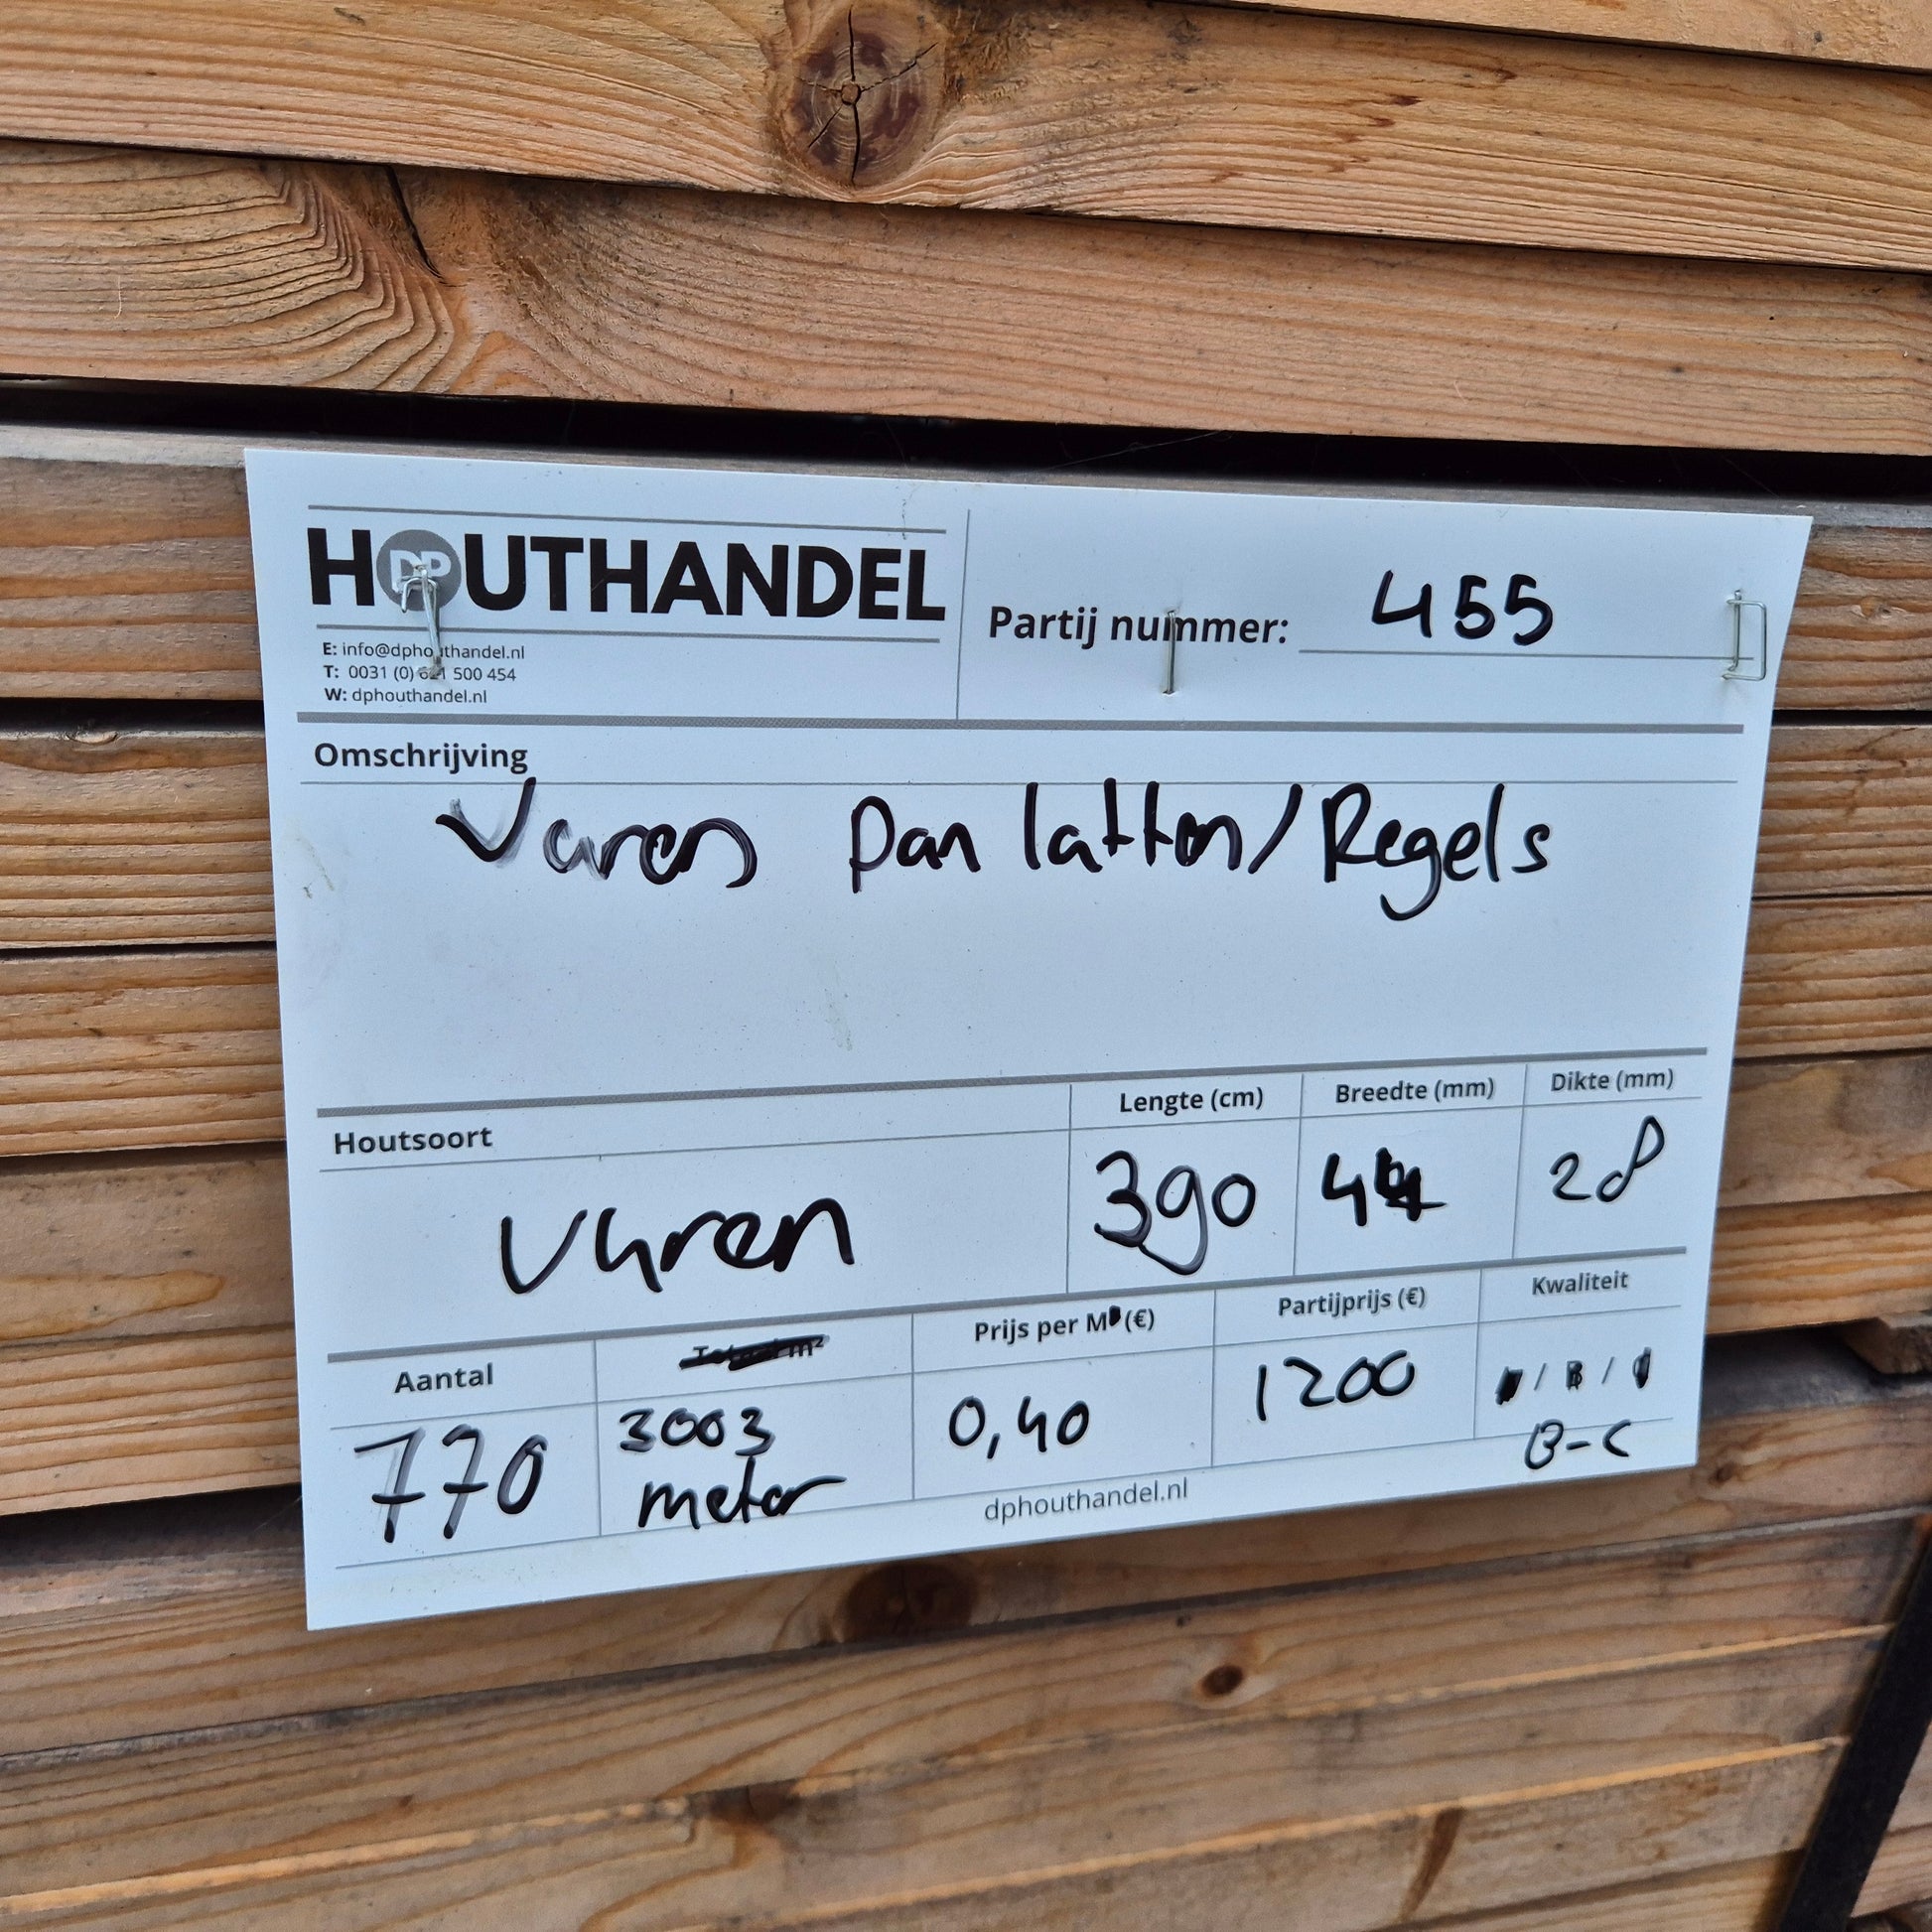 HOUTHANDEL
DP
E: info@dphouthandel.nl
T: 0031 (0) 621 500 454
W: dphouthandel.nl
Partij nummer: 455
Omschrijving
Vuren Pan latten/Regels
Houtsoort
Vuren
Lengte (cm)
390
Breedte (mm)
44
Dikte (mm)
28
Aantal
770
m²
3003
meter
Prijs per M (€)
0,40
Partijprijs (€)
1200
Kwaliteit
/ B /
B-C
dphouthandel.nl